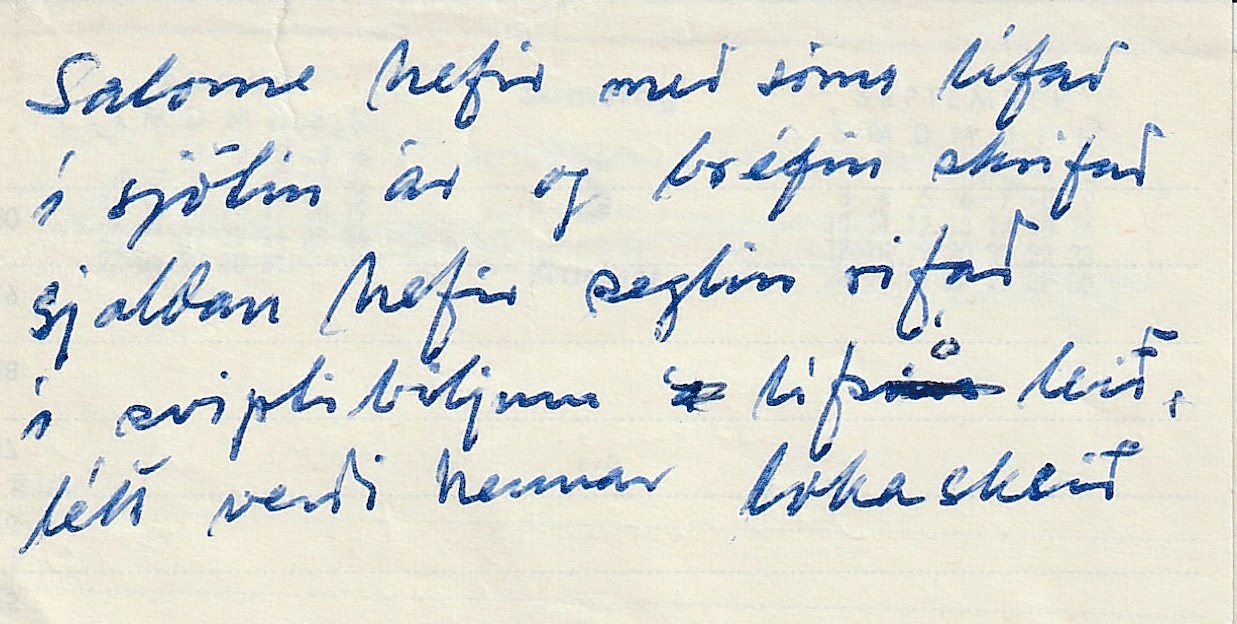 Salome hefir með sóma lifað
í sjötiu ár og bréfin skrifað
sjaldan hefir seglin rifað
í sviptibiljum á lifsins leið,
létt verði hennar lokaskeið